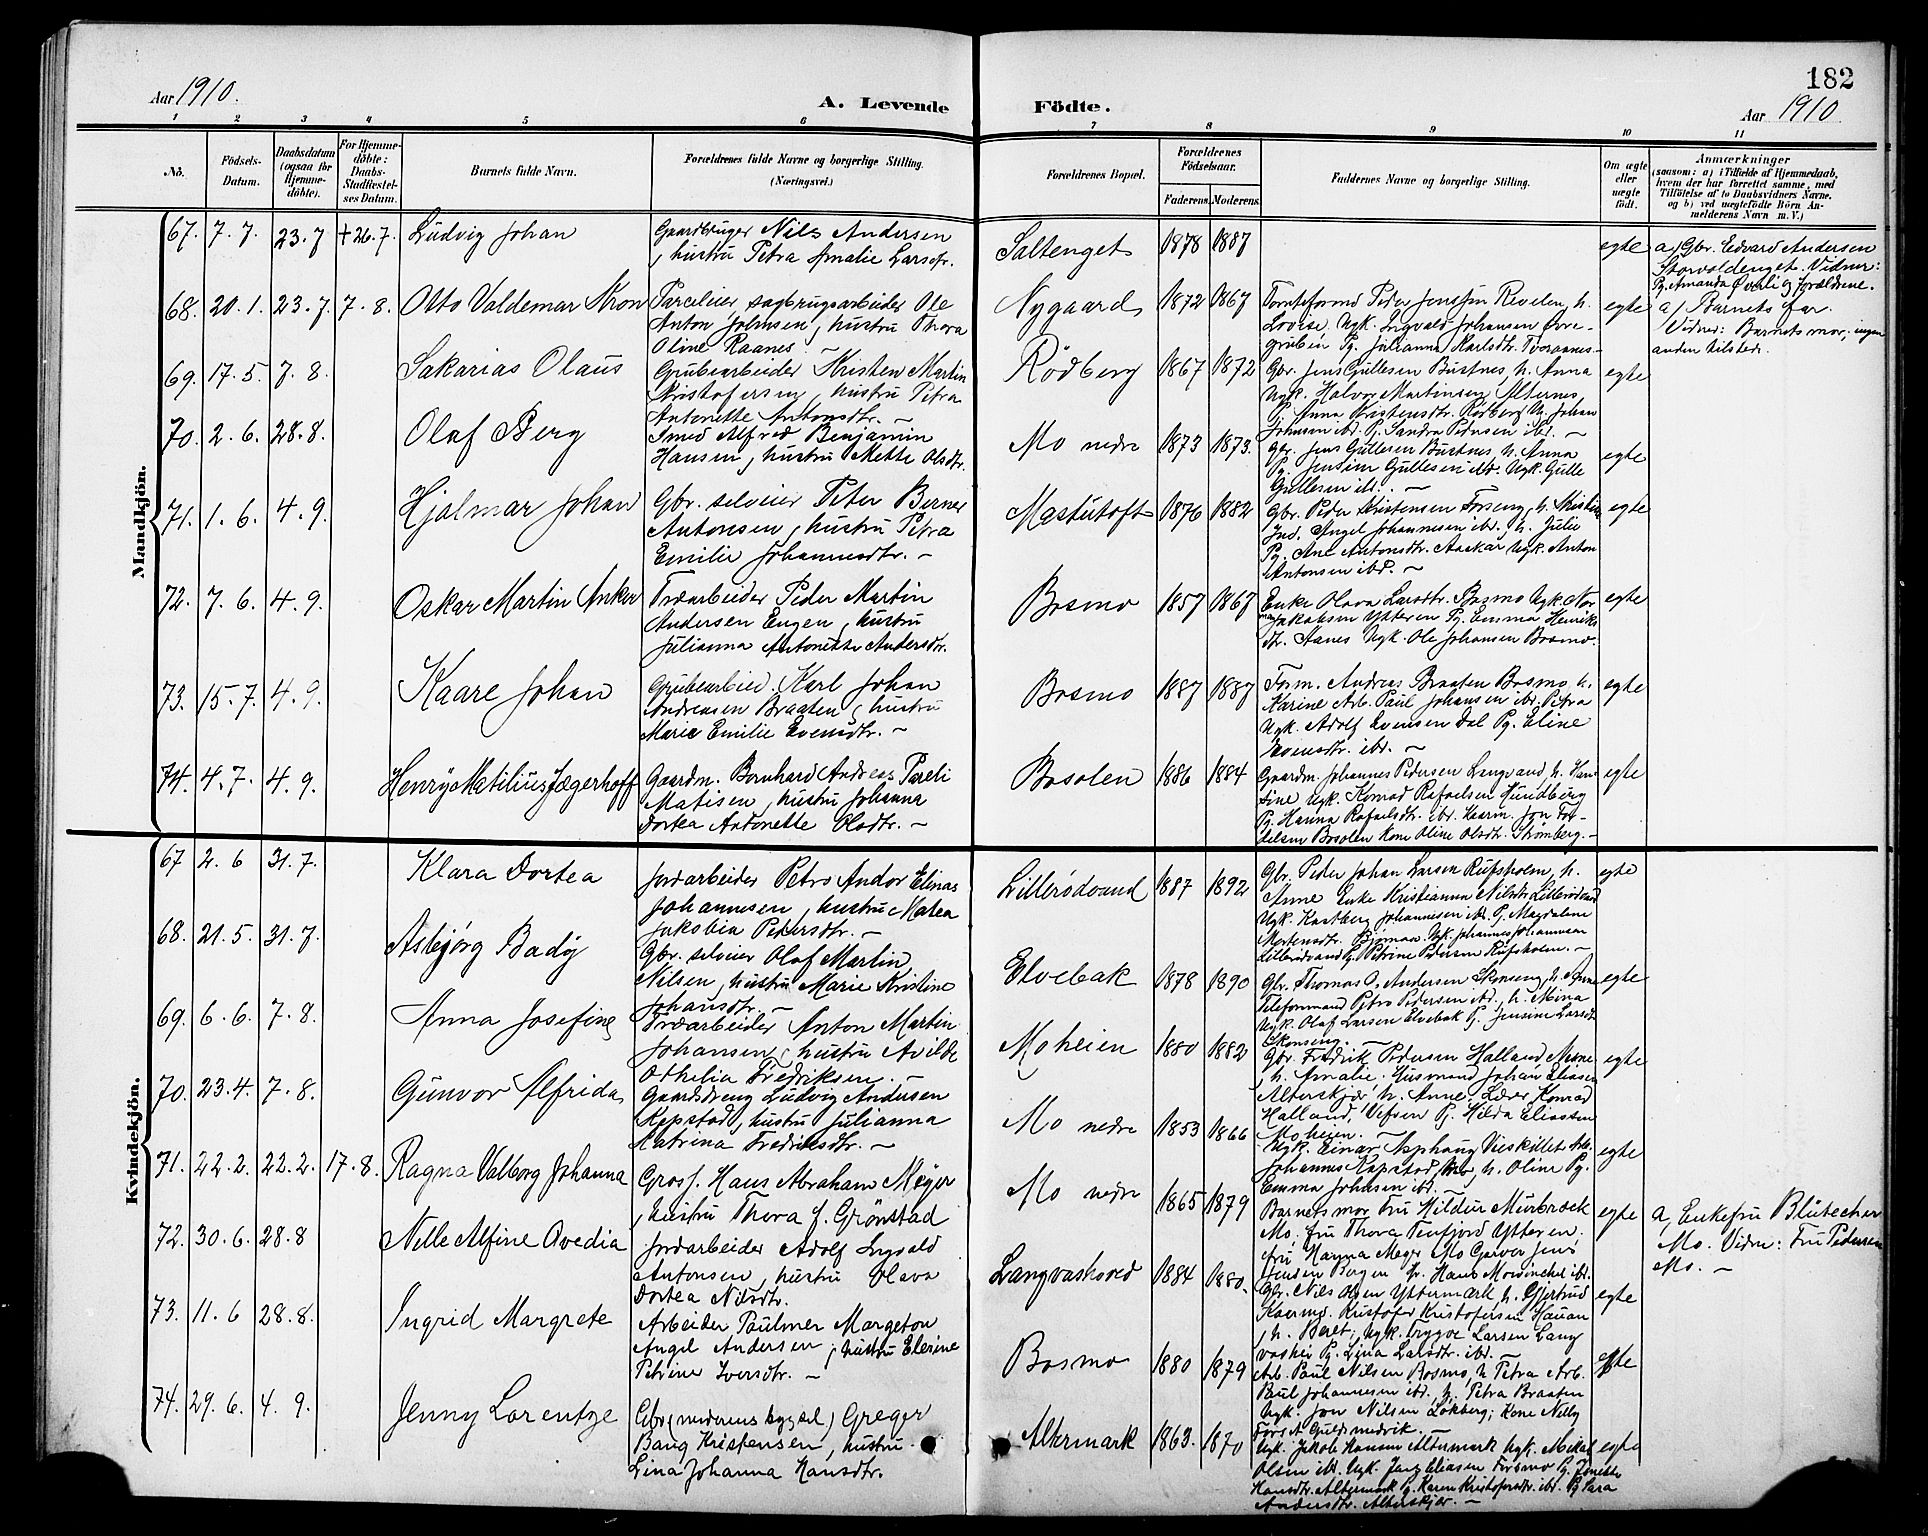 182
Aar 1910.
A. Levende Födte.
Aar 1910.
1 2 3 4 5 6 7 8 9 10 11
No.
Födsels-Datum.
Daabsdatum (ogsaa for Hjemme-döbte).
For Hjemme-döbte: Daabs-Stadfæstel-ses Datum.
Barnets fulde Navn.
Forældrenes fulde Navne og borgerlige Stilling.
(Næringsvei.)
Forældrenes Bopæl.
Forældrenes Födselsaar.
Faderens. Moderens.
Faddernes Navne og borgerlige Stilling.
Om ægte eller uægte födt.
Anmærkninger
(saasom: a) i Tilfælde af Hjemmedaab,
hvem der har forrettet samme, med
Tilföielse af to Daabsvidners Navne.
og b) ved uægtefödte Börn An-
melderens Navn m. V.)
Mandkjön.
67. 7. 7. 23. 7 +26. 7. Ludvig Johan
Gaardbruger Nils Andersen
, hustru Petra Amalie Larsdr.
Saltenget 1878 1887 egte
a) Gbr. Edvard Andersen
Storvoldenget. Vidner:
Pg. Amanda Øverli og Forældrene.
68. 20. 1. 23. 7. 7. 8. Otto Valdemar Kron
Parceleier sagbrugsarbeider Ole
Anton Johnsen, hustru Thora
Oline Raanes.
Nygaard 1872 1867
Tomteformd Peder Jenssen Revelen, h.
Lovise. Ugk. Ingvald Johansen Övre-
gruben Pg. Julianna Karlsdtr. Tvoraanes.-
egte
a) Barnets far.
Vidner: Barnets mor; ingen
anden tilstede.
69. 17. 5. 7. 8. Sakarias Olaus
Grubearbeider Kristen Martin
Kristofersen, hustru Petra
Antonette Antonsdtr. -
Rödberg 1867 1872
Gbr. Jens Gullesen Bustnes, h. Anna
Ugk. Halvor Martinsen Alternes
Pg. Anna Kristensdtr. Rödberg Ugk. Johan
Johnsen ibd. Pg. Sandra Pedersen ibd. -
egte
70. 2. 6. 28. 8. Olaf Berg
Smed Alfred Benjamin
Hansen, hustru Mette Olsdtr.
Mo nedre 1873 1873.
Gbr. Jens Gullesen Bustnes, h. Anna
Pg. Jensine Gullesen ibd. Ugk. Gulle
Gullesen ibd. -
egte
71. 1. 6. 4. 9. Hjalmar Johan
Gbr. selveier Peter Berner
Antonsen, hustru Petra
Emilie Johannesdtr. -
Mastutoft 1876 1882
Gbr. Peder Kristensen Forseng, h. Kristine
Ind. Angel Johannesen ibd., h. Julie
Pg. Ane Antonsdtr. Aaskar Ugk. Anton
Antonsen ibd. -
egte
72. 7. 6. 4. 9. Oskar Martin Anker
Træarbeider Peder Martin
Andersen Engen, hustru
Julianna Antonette Andersdtr.
Bosmo 1857 1867
Enke Olava Larsdtr. Bosmo Ugk. Nor
Jakobsen Ytteren Pg. Emma Henriks
dtr. Hanes Ugk. Ole Johansen Bosmo.
egte
73. 15. 7. 4. 9. Kaare Johan
Grubearbeid. Karl Johan
Andreasen Braaten, hustru
Marie Emilie Evensdtr. -
Bosmo 1887 1887
Form. Andreas Braaten Bosmo, h.
Karine Arb. Paul Johansen ibd. Petra
Ugk. Adolf Evensen Dal Pg. Eline
Evensdtr. ibd. -
egte
74. 4. 7. 4. 9. Henry Matilius Jægerhoff
Gaardm. Bernhard Andreas Pareli
Matisen, hustru Johanna
Dortea Antonette Olsdtr. -
Bosolen 1886 1884
Gaardm. Johannes Pedersen Langvand, h. Han
sine Ugk. Konrad Rafaelsen Hundberg
Pg. Hanna Rafaelsdtr. ibd. Husm. Jon Tor-
delsen Bosolen Kone Oline Olsdtr. Strömberg. -
egte
Kvindekjön.
67 2. 6 31. 7. Klara Dortea
Jordarbeider Petro Andor Elinas
Johannesen, hustru Matea
Jakobia Pedersdtr. -
Lillerödvand 1887 1892
Gbr. Peder Johan Larsen Rufsholen, h.
Anne Enke Kristianna Nilsdtr. Lillerödvand
Ugk. Kastberg Johannesen ibd. Pg. Magdalene
Mortensdtr. Ugk. Johannes Johannesen
Lillerödvand Pg. Petrine Pedersen Rufsholen. -
egte
68. 21. 5. 31. 7. Asbjørg Badø
Gbr. selveier Olaf Martin
Nilsen, hustru Marie Kristine
Johansdtr. -
Elvebak 1878 1890
Gbr. Thomas A. Andersen Skonseng, h. Anne
Telefonmand Petro Pedersen ibd., h. Mina
Ugk. Olaf Larsen Elvebak Pg. Jensine Larsdtr.
Skonseng. -
egte
69. 6. 6. 7. 8. Anna Josefine
Træarbeider Anton Martin
Johansen, hustru Avilde
Othelia Fredriksen. -
Moheien 1880 1882
Gbr. Fredrik Pedersen Halland Misne
, h. Amalie. Husmand Johan Eliasen
Alterskjær, h. Anne Lærer Konrad
Halland, Vefsen Pg. Hilda Eliassen
Moheien. -
egte
70. 23. 4. 7. 8. Gunvor Alfrida
Gaardsdreng Ludvig Andersen
Kopstad, hustru Julianna
Katrina Fredriksdtr. -
Mo nedre 1853 1866
Ugk. Einar Asphaug Veiskillet Arb.
Johannes Kopstad Mo, h. Oline Pg.
Emma Johnsen ibd.
egte
71. 22. 2. 22. 2. 17. 8. Ragna Valborg Johanna
Gross. Hans Abraham Meyer
, hustru Thora f. Grönstad
Mo nedre 1865 1879
Barnets mor Fru Hildur Meirbroek
Mo. Fru Thora Tenfjord Ytteren.
Fru Hanna Meyer Mo Garver Jens
Jensen Bergen Hr. Hans Mowinckel ibd.
egte
a) Enkefru Blütecher
Mo. Vidne: Fru Pedersen
Mo. -
72. 30. 6. 28. 8 Nelle Alfine Ovedia
Jordarbeider Adolf Ingvald
Antonsen, hustru Olava
Dortea Nilsdtr.
Langvashered 1884 1880.
Gbr. Nils Olsen Yttermark h. Gjertrud
Kaarmd. Kristofer Kristofersen Hauan
, h. Beret; Ugk. Trygve Larsen Lang
vashei Pg. Lina Larsdtr. ibd. -
egte
73. 11. 6 28. 8. Ingrid Margrete
Arbeider Paulmer Margeton
Angel Andersen, hustru Elerine
Petrine Iversdtr. -
Bosmo 1880 1879
Arb. Paul Nilsen Bosmo, h. Petra Arb.
Paul Johannesen ibd., h. Petra Braaten
Ugk. Jon Nilsen Lökberg; Kone Nelly
Forsst Guldsmedvik. -
egte
74. 29. 6. 4. 9. Jenny Lorentze
Gbr. (moderens bygsel) Greger
Bang Kristensen, hustru
Lina Johanna Hansdtr.
Altermark 1863. 1870
Ugk. Jakob Hansen Altermark Ugk. Mikal
Olsen ibd. Ugk. Jarg Eliasen Forsmo Pg. Jonette
Hansdtr. Altermark Pg. Karen Kristofersdtr. ibd. Pg. Sara
Andersdtr. Alterskjær. -
egte